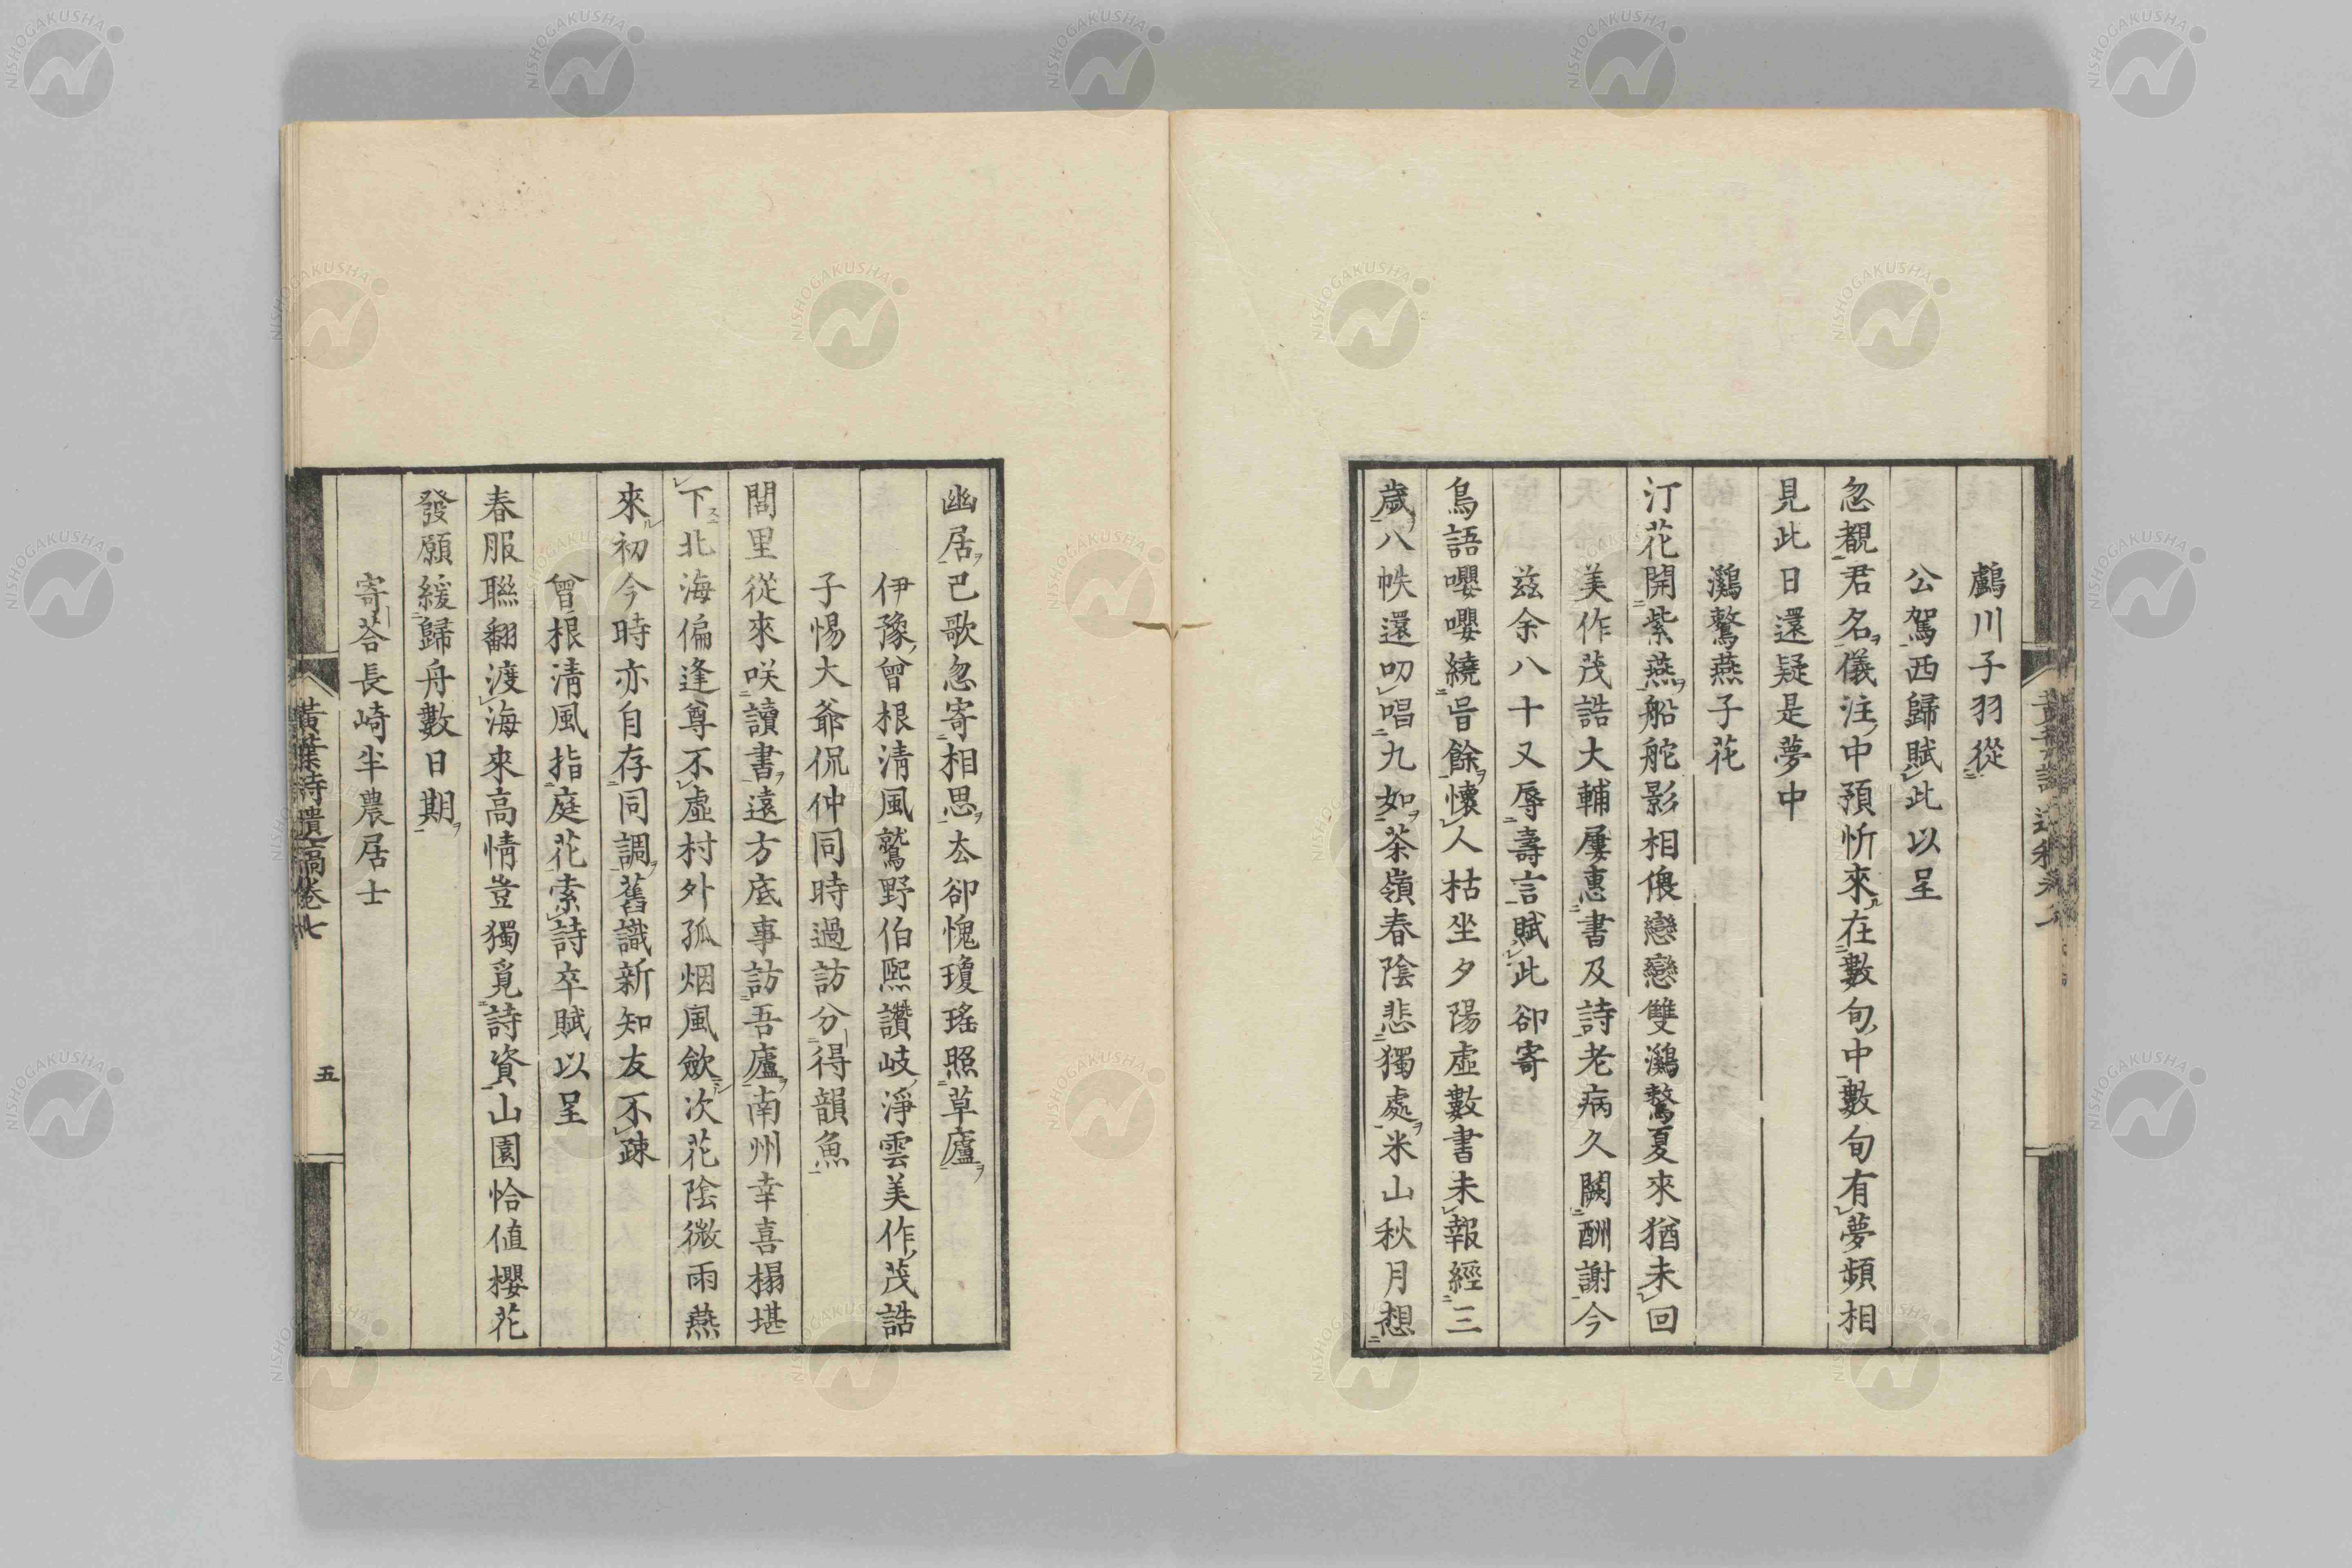 鸕川子羽從
公駕西歸賦此以呈
忽覩君名儀注中預忻來在數旬中數旬有夢頻相
見此日還疑是夢中
燕子花
汀花開紫燕船舵影相偎戀戀雙夏來猶未回
美作茂誥大輔屢惠書及詩老病久闕酬謝今
茲余八十又辱壽言賦此卻寄
鳥語嚶嚶繞旹餘懷人枯坐夕陽虛數書未報經三
歲八帙還叨唱九如茶嶺春陰悲獨處米山秋月想
幽居已歌忽寄相思去卻愧瓊瑤照草廬
伊豫曾根淸風鷲野伯熙讚岐淨雲美作茂誥
子惕大爺侃仲同時過訪分得韻魚
閭里從來咲讀書遠方底事訪吾廬南州幸喜榻堪
下北海偏逢尊不虛村外孤烟風歛次花陰微雨燕
來初今時亦自存同調舊識新知友不疎
曾根淸風指庭花索詩卒賦以呈
春服聯翻渡海來高情豈獨覓詩資山園恰値櫻花
發願緩歸舟數日期
寄荅長崎半農居士
黃葉詩遺稿卷
五
NISHOGAKUSHA